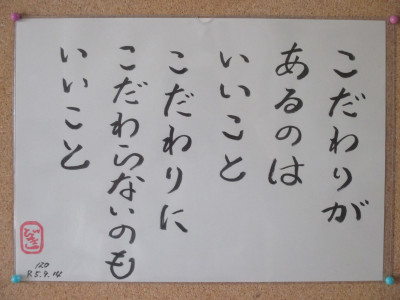 こだわりが
あるのは
いいこと
こだわりに
こだわらないのも
いいこと
120
R5.9.14